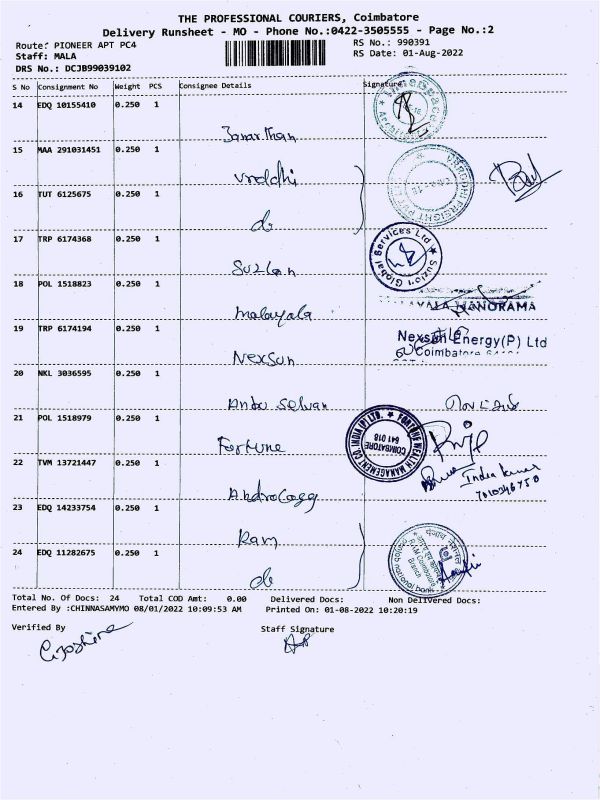 THE PROFESSIONAL COURIERS, Coimbatore
Delivery Runsheet - MO - Phone No.:0422-3505555 - Page No.:2
Route: PIONEER APT PC4 RS No.: 990391
Staff: MALA RS Date: 01-Aug-2022
DRS No.: DCJB99039102
S No Consignment No Weight PCS Consignee Details Signature
14 EDQ 10155410 0.250 1
Janarthan
15 MAA 291031451 0.250 1
Vriddhi
16 TUT 6125675 0.250 1
do
17 TRP 6174368 0.250 1
Suzlon
Suzlon Global Services Ltd
18 POL 1518823 0.250 1
malayala
MANORAMA
19 TRP 6174194 0.250 1
Nexsun
Nexsun Energy(P) Ltd
Coimbatore
20 NKL 3036595 0.250 1
Anbu Selvan
21 POL 1518979 0.250 1
Fortune
FORTUNE WEALTH MANAGEMENT CO. INDIA (P) LTD.
COIMBATORE
641 018
22 TVM 13721447 0.250 1
India Kumar
23 EDQ 14233754 0.250 1
Ram
24 EDQ 11282675 0.250 1
do
punjab national bank
Total No. Of Docs: 24 Total COD Amt: 0.00 Delivered Docs: Non Delivered Docs:
Entered By :CHINNASAMYMO 08/01/2022 10:09:53 AM Printed On: 01-08-2022 10:20:19
Verified By Staff Signature